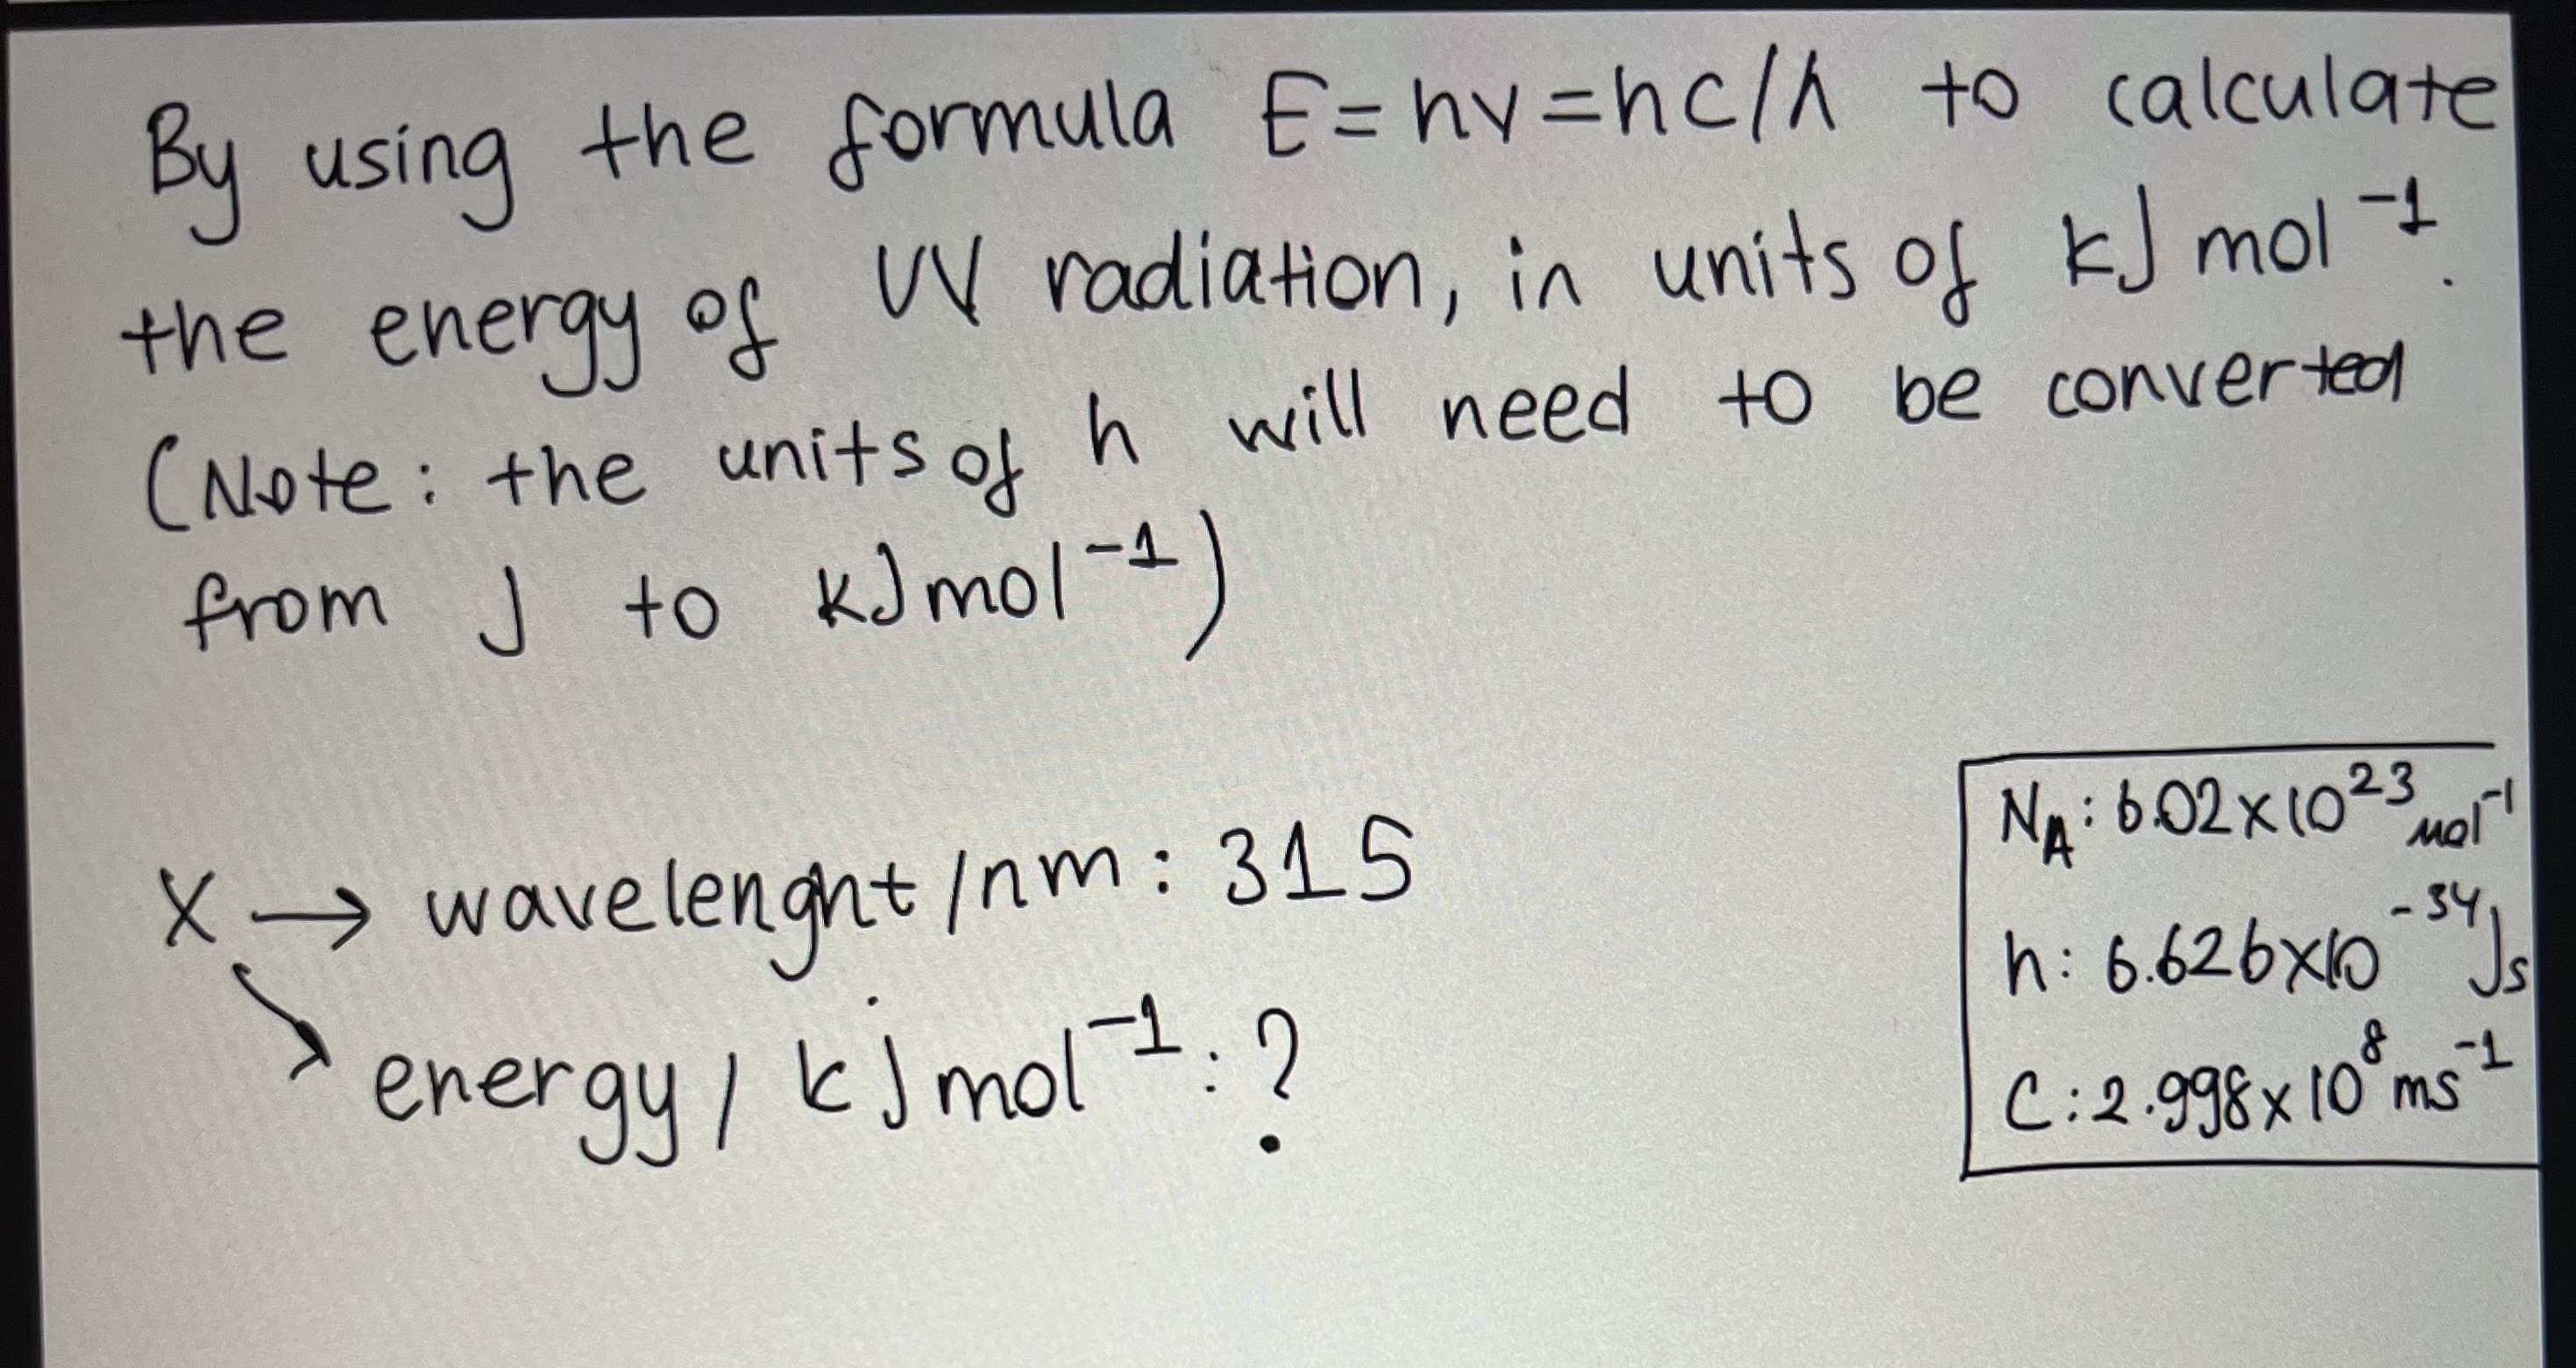 By using the formula E=hv=hc/λ to calculate
the energy of UV radiation, in units of kJ mol⁻¹.
(Note: the units of h will need to be converted
from J to kJmol⁻¹)
X → wavelenght/nm: 315
energy/ kjmol⁻¹: ?
N_A: 6.02×10²³ mol⁻¹
h: 6.626×10⁻³⁴Js
C: 2.998×10⁸ms⁻¹